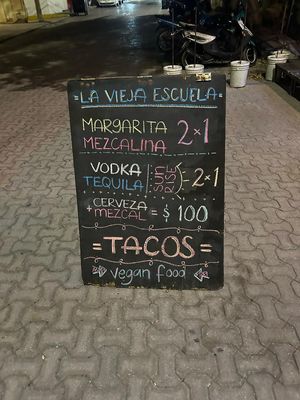 =LA VIEJA ESCUELA=
MARGARITA
MEZCALINA 2x1
VODKA
TEQUILA SUN RISE -2x1
CERVEZA
+ MEZCAL = $ 100
=TACOS=
vegan food